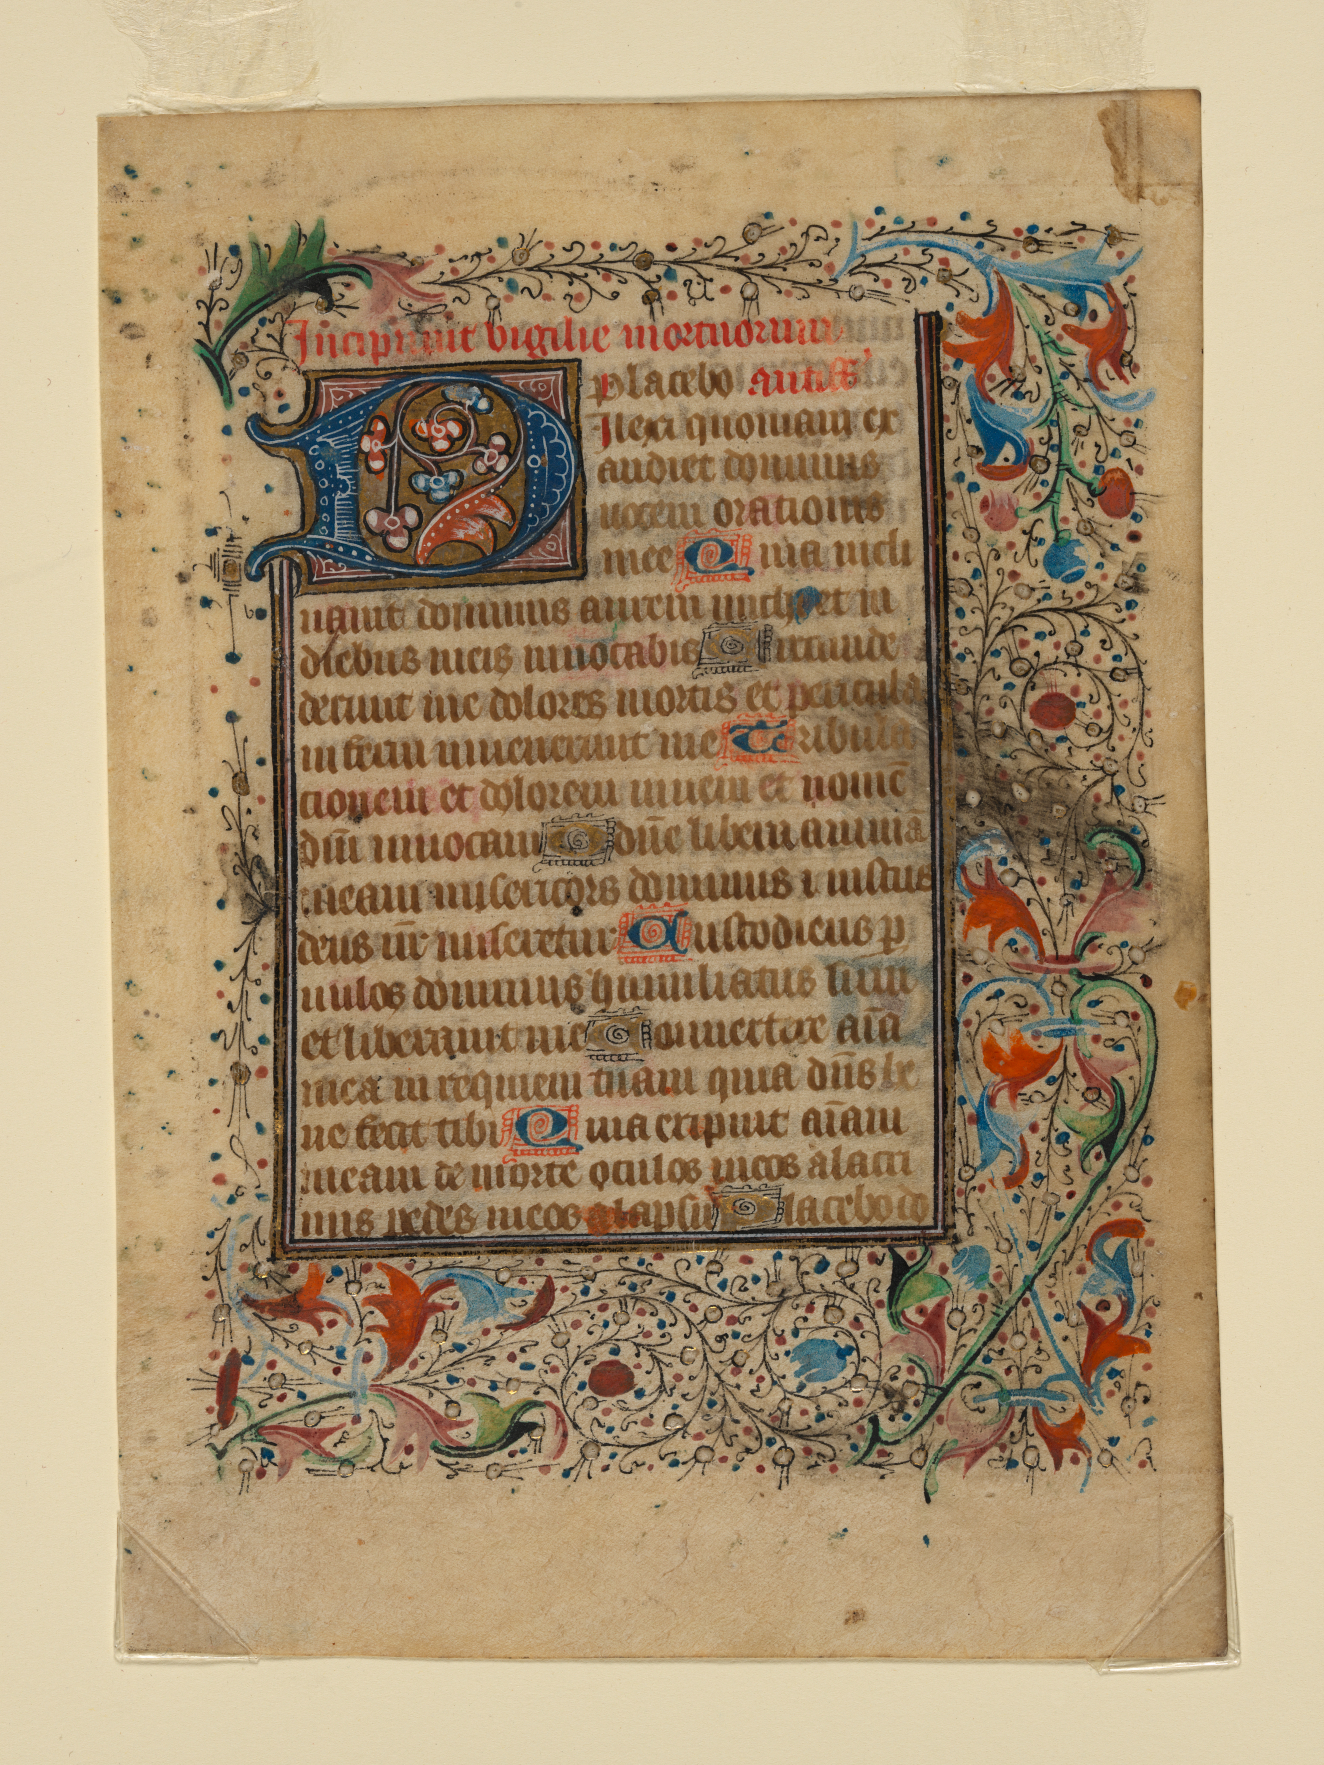 Incipiunt vigilie mortuorum
Placebo antiff'
Dilexi quoniam ex
audiet dominus
uocem orationis
mee Quia incli
nauit dominus aurem michi et in
diebus meis inuocabis Circunde
derunt me dolores mortis et pericula
inferni inuenerunt me Tribula
tionem et dolorem inueni et nomē
dn̄i inuocaui O dn̄e libera animā
meam misericors dominus ⁊ iustus
deus nr̄ miseretur Custodiens p
uulos dominus humiliatus sum
et liberauit me Conuertere aīa
mea in requiem tuam quia dn̄s be
ne fecit tibi Quia eripuit aīam
meam de morte oculos meos a lacri
mis pedes meos a lapsu Placebo do